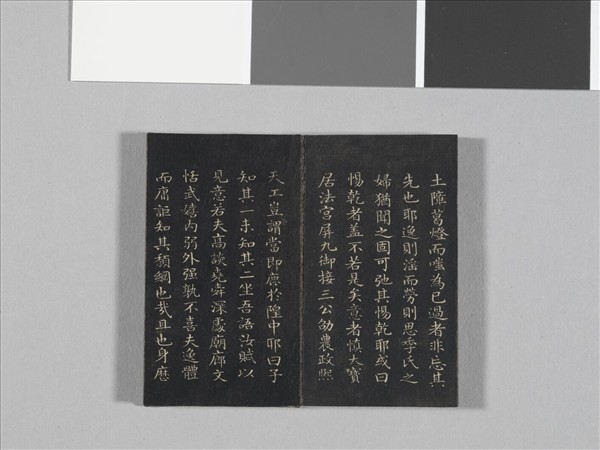 土障葛燈而嗤為已過者非忘其
先也耶逸則滛而勞則思季氏之
婦猶聞之固可弛其惕乾耶或曰
惕乾者盖不若是矣意者慎大寶
居法宮屏九御接三公劭農政熙
天工豈謂當即廘於隍中耶曰子
知其一未知其二坐吾語汝賦以
見意若夫高談堯舜深處廟廊文
恬武嬉内弱外强孰不喜夫逸體
而庸詎知其頽綱也哉且也身歴